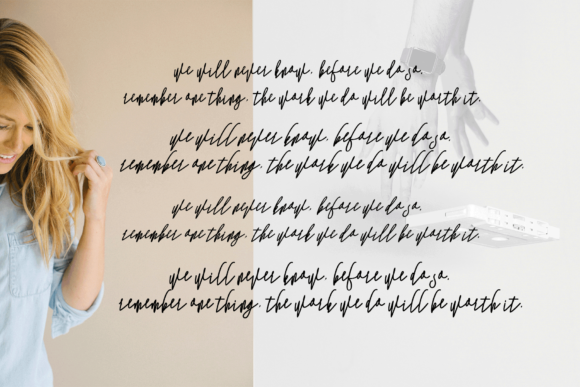 we will never know. before we do so.
remember one thing. the work we do will be worth it.
we will never know. before we do so.
remember one thing. the work we do will be worth it.
we will never know. before we do so.
remember one thing. the work we do will be worth it.
we will never know. before we do so.
remember one thing. the work we do will be worth it.